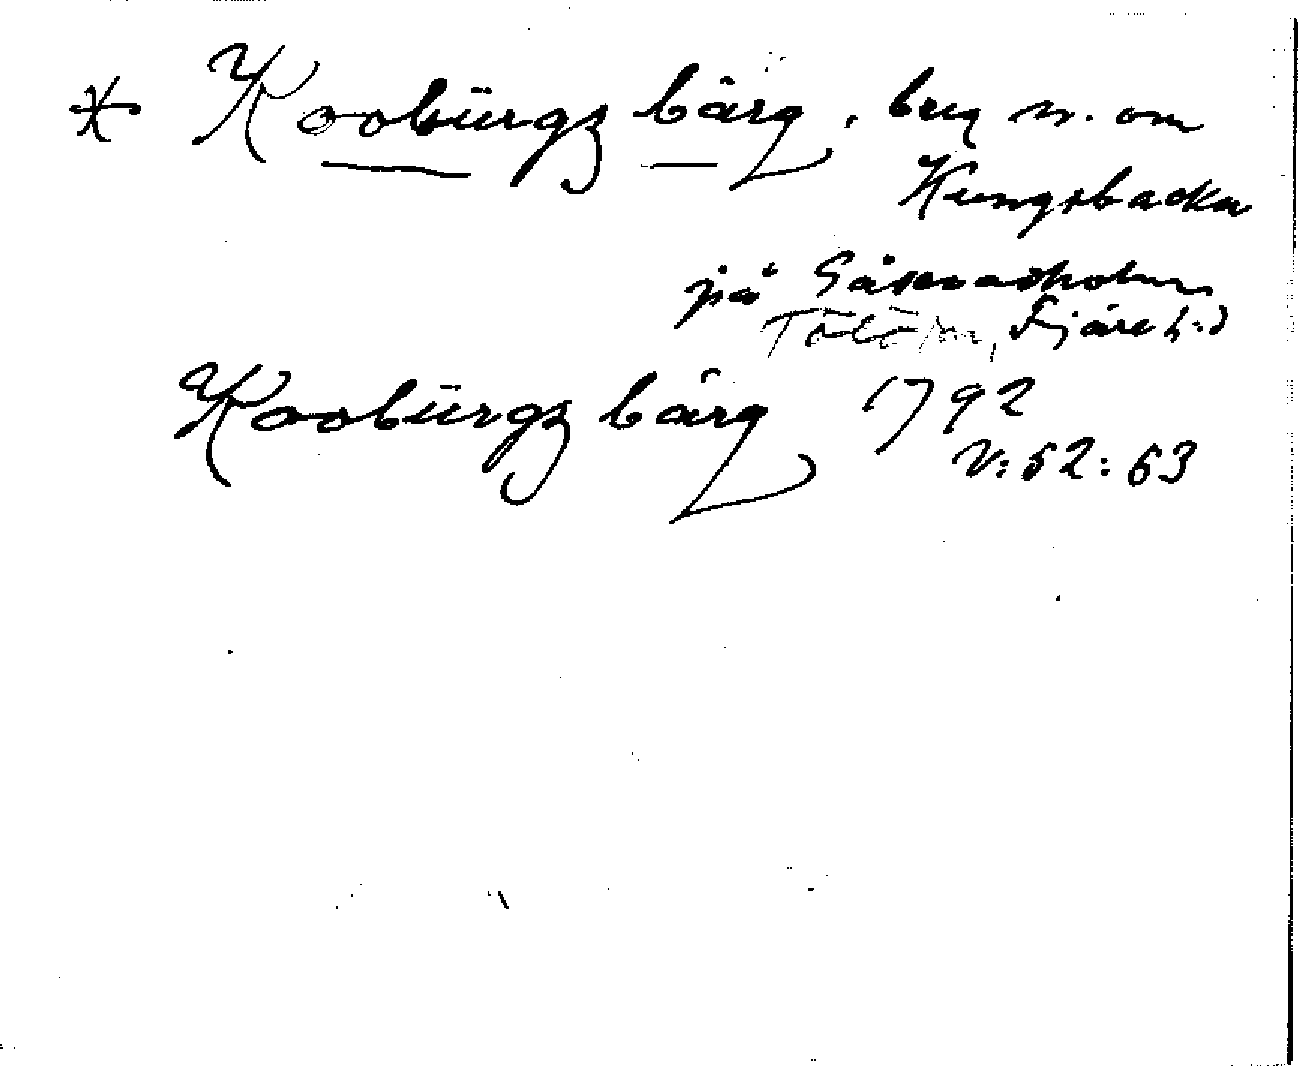 * Koobürgz bärg, berg n. om
Kungsbacka
på Gåsevadholm
Tölö sn, Fjäre h:d
Koobürgz bärg 1792
V: 52: 53